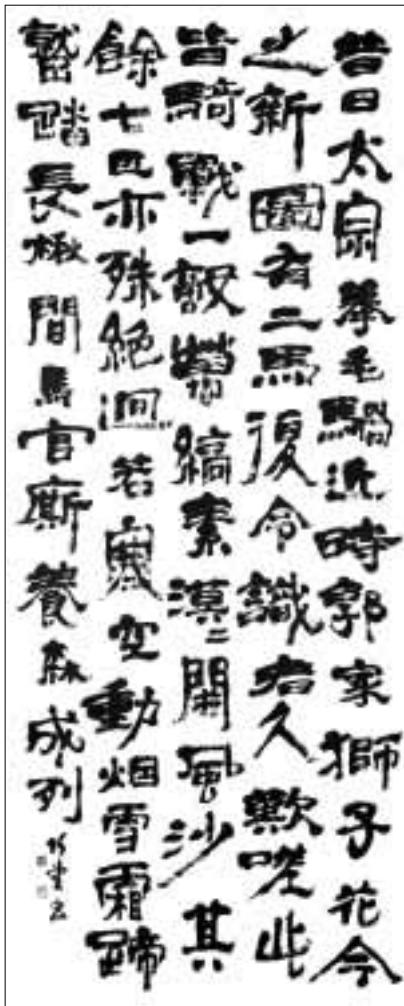 昔日太宗拳毛騧近時郭家獅子花今
之新圖有二馬復令識者久歎嗟此
皆騎戰一敵萬縞素漠〻開風沙其
餘七匹亦殊絶迥若寒空動烟雪霜蹄
蹵踏長楸間馬官廝養森成列